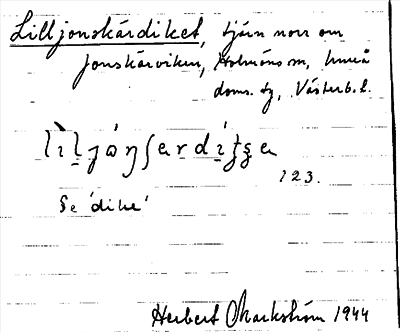 Lilljonskärdiket, tjärn norr om
Jonskärviken, Holmöns sn, Umeå
doms. tg, Västerb. l.
123.
Se 'dike'
Herbert Markström 1944